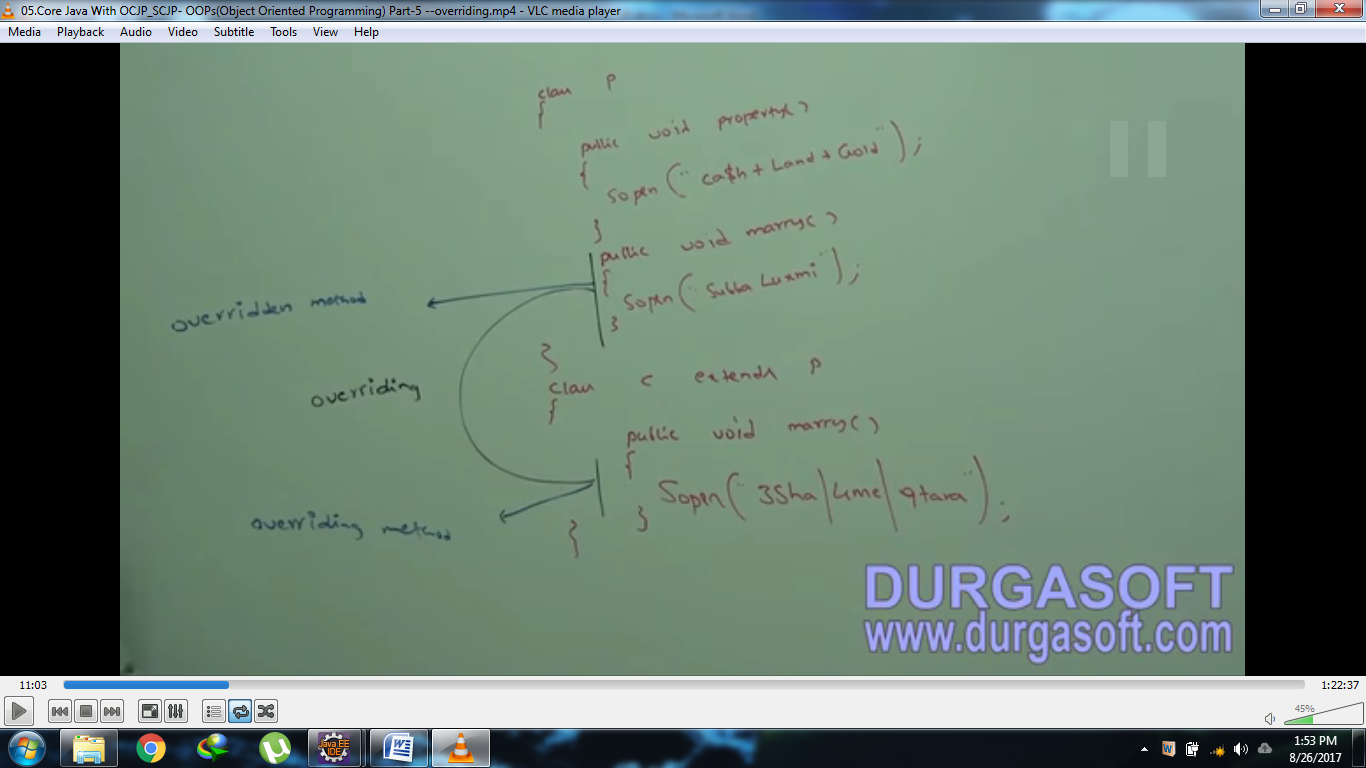 05.Core Java With OCJP_SCJP- OOPs(Object Oriented Programming) Part-5 --overriding.mp4 - VLC media player
Media Playback Audio Video Subtitle Tools View Help
class P
{
public void property()
{
Sopln("cash+Land+Gold");
}
public void marry()
{
Sopln("Subba Luxmi");
}
}
overridden method
overriding
class C extends P
{
public void marry()
{
Sopln("3Sha|4me|9tara");
}
}
overriding method
DURGASOFT
www.durgasoft.com
11:03
1:22:37
45%
Java EE
IDE
1:53 PM
8/26/2017